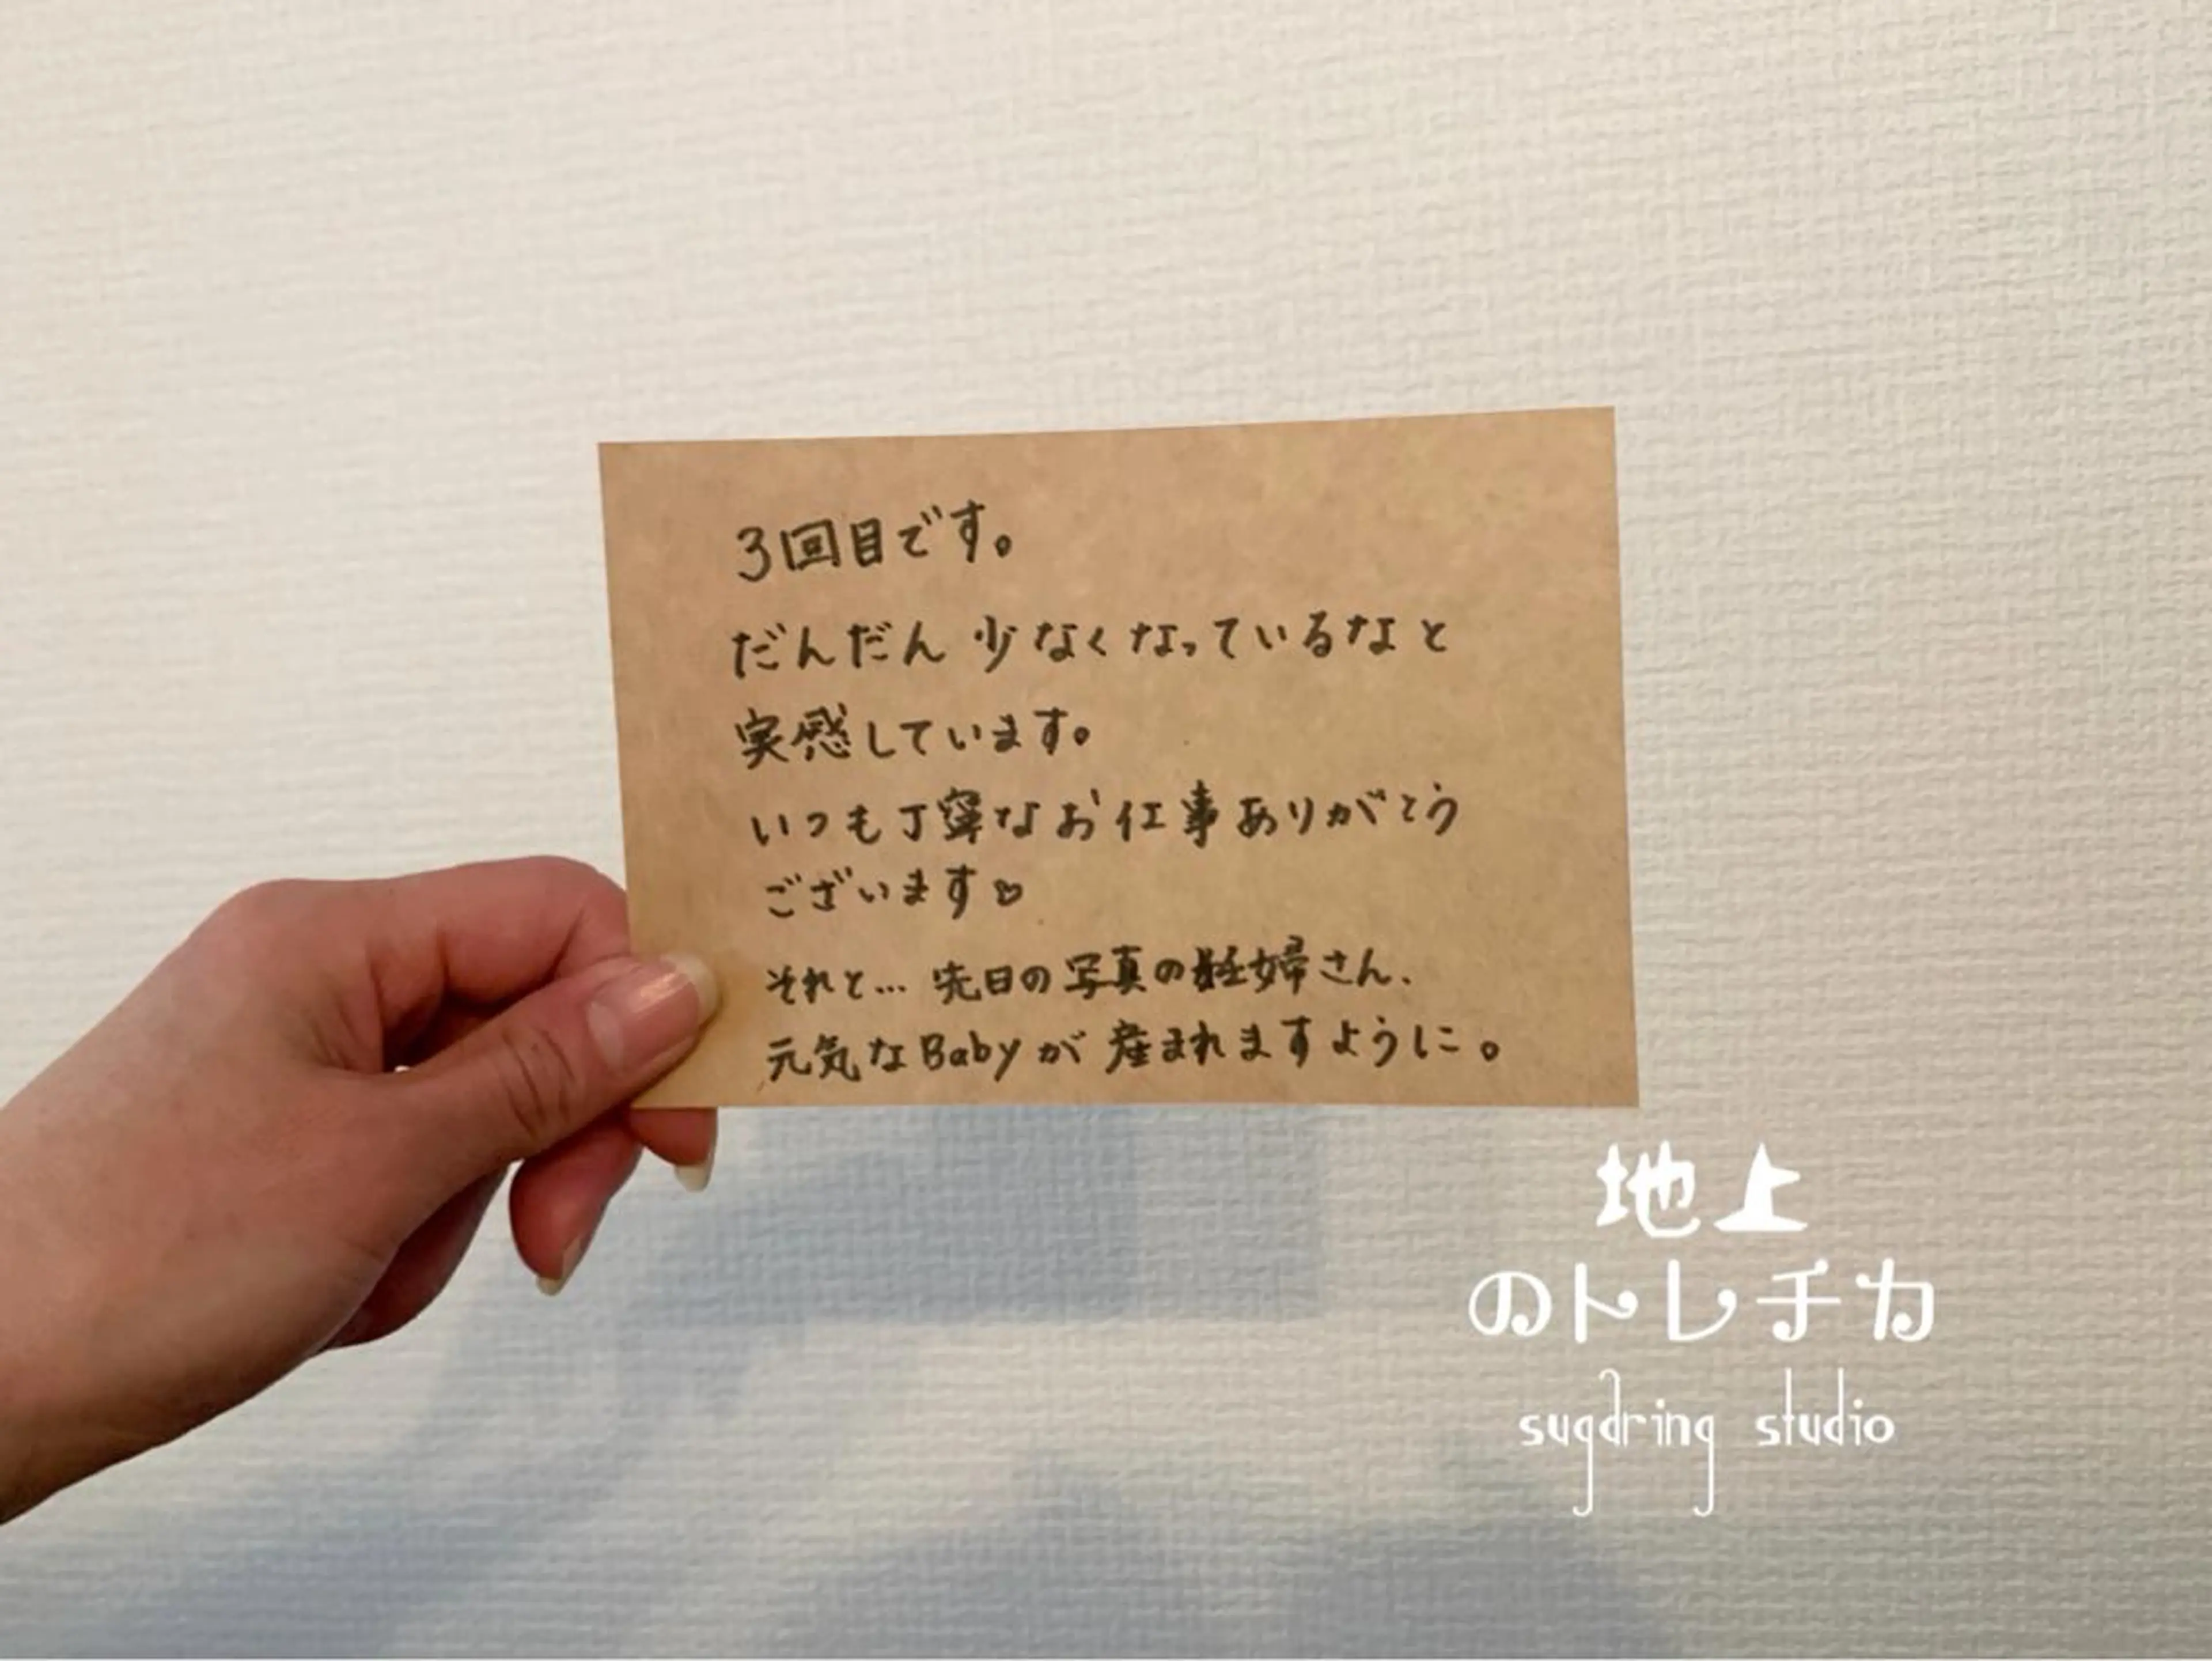 3回目です。
だんだん少なくなっているなと
実感しています。
いつも丁寧なお仕事ありがとう
ございます♡
それと… 先日の写真の妊婦さん、
元気なBabyが産まれますように。
地上
のトレチカ
sugdring studio